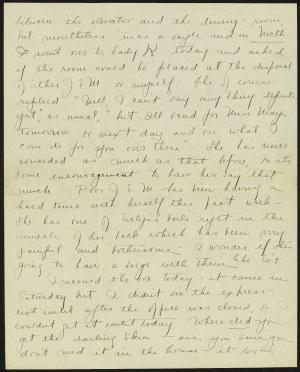 between the elevator and the dining-room,
but nevertheless 'twas a single and in North
I went over to Lady K today and asked
if the room could be placed at the disposal
of either J E M or myself. She of course
replied "Well, I can't say anything definite
yet," as usual, "but I'll send for Miss Mays
tomorrow or next day and see what I
can do for you over there" She has never
conceded as much as that before, so it's
some encouragement to have her say that
much. Poor J E M has been having a
hard time with herself this past week—
She has one of Evelyn's boils right in the
middle of her back which has been very
painful and bothersome— I wonder if she's
going to have a siege with them like
I received the box today it came in
Saturday but I didn't see the express-
not until after the office was closed, so I
couldn't get it until today. Where did you
get the darling skin — are you sure you
don't need it in the house — it looks